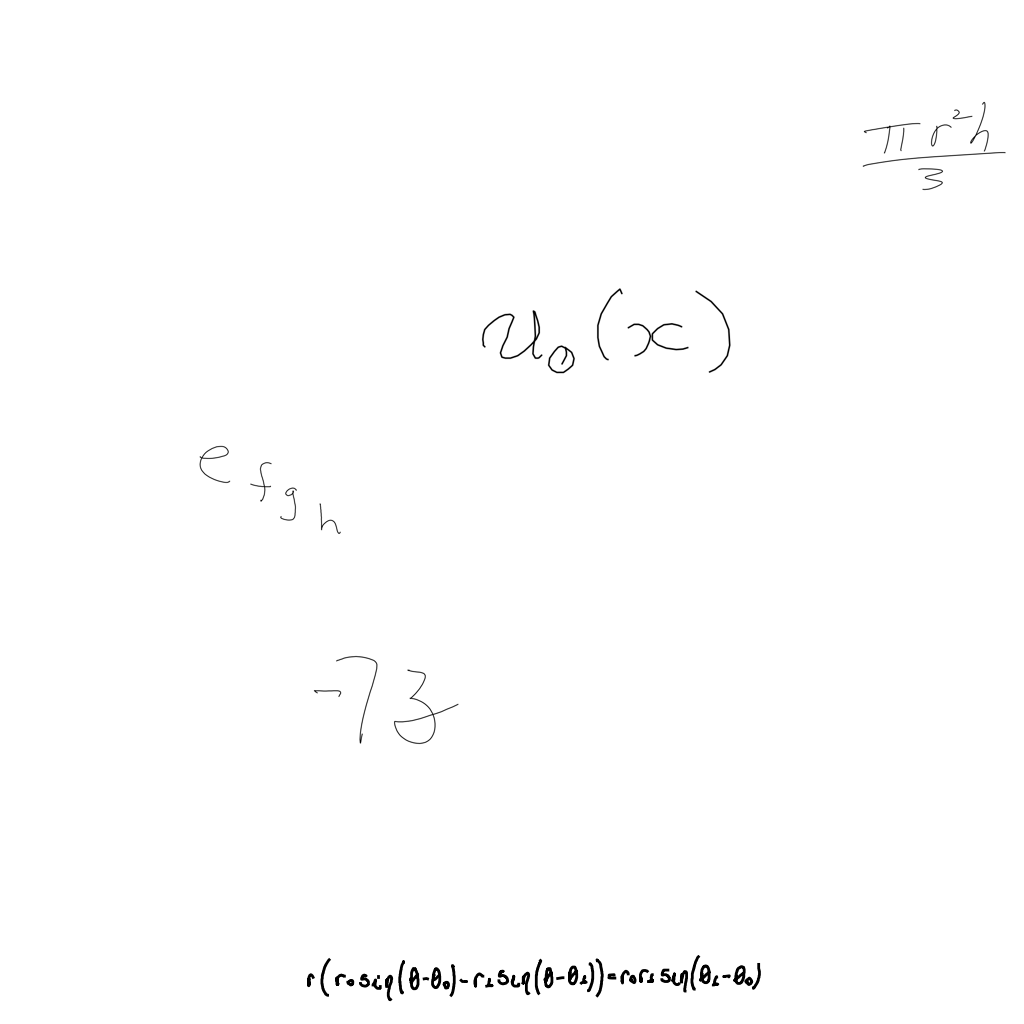 \frac{\pi r^2 h}{3}
u_0(x)
e_{f_{g_h}}
-73
r(r_0 sin(θ-θ_0)-r_1 sin(θ-θ_1))=r_0 r_1 sin(θ_1-θ_0)